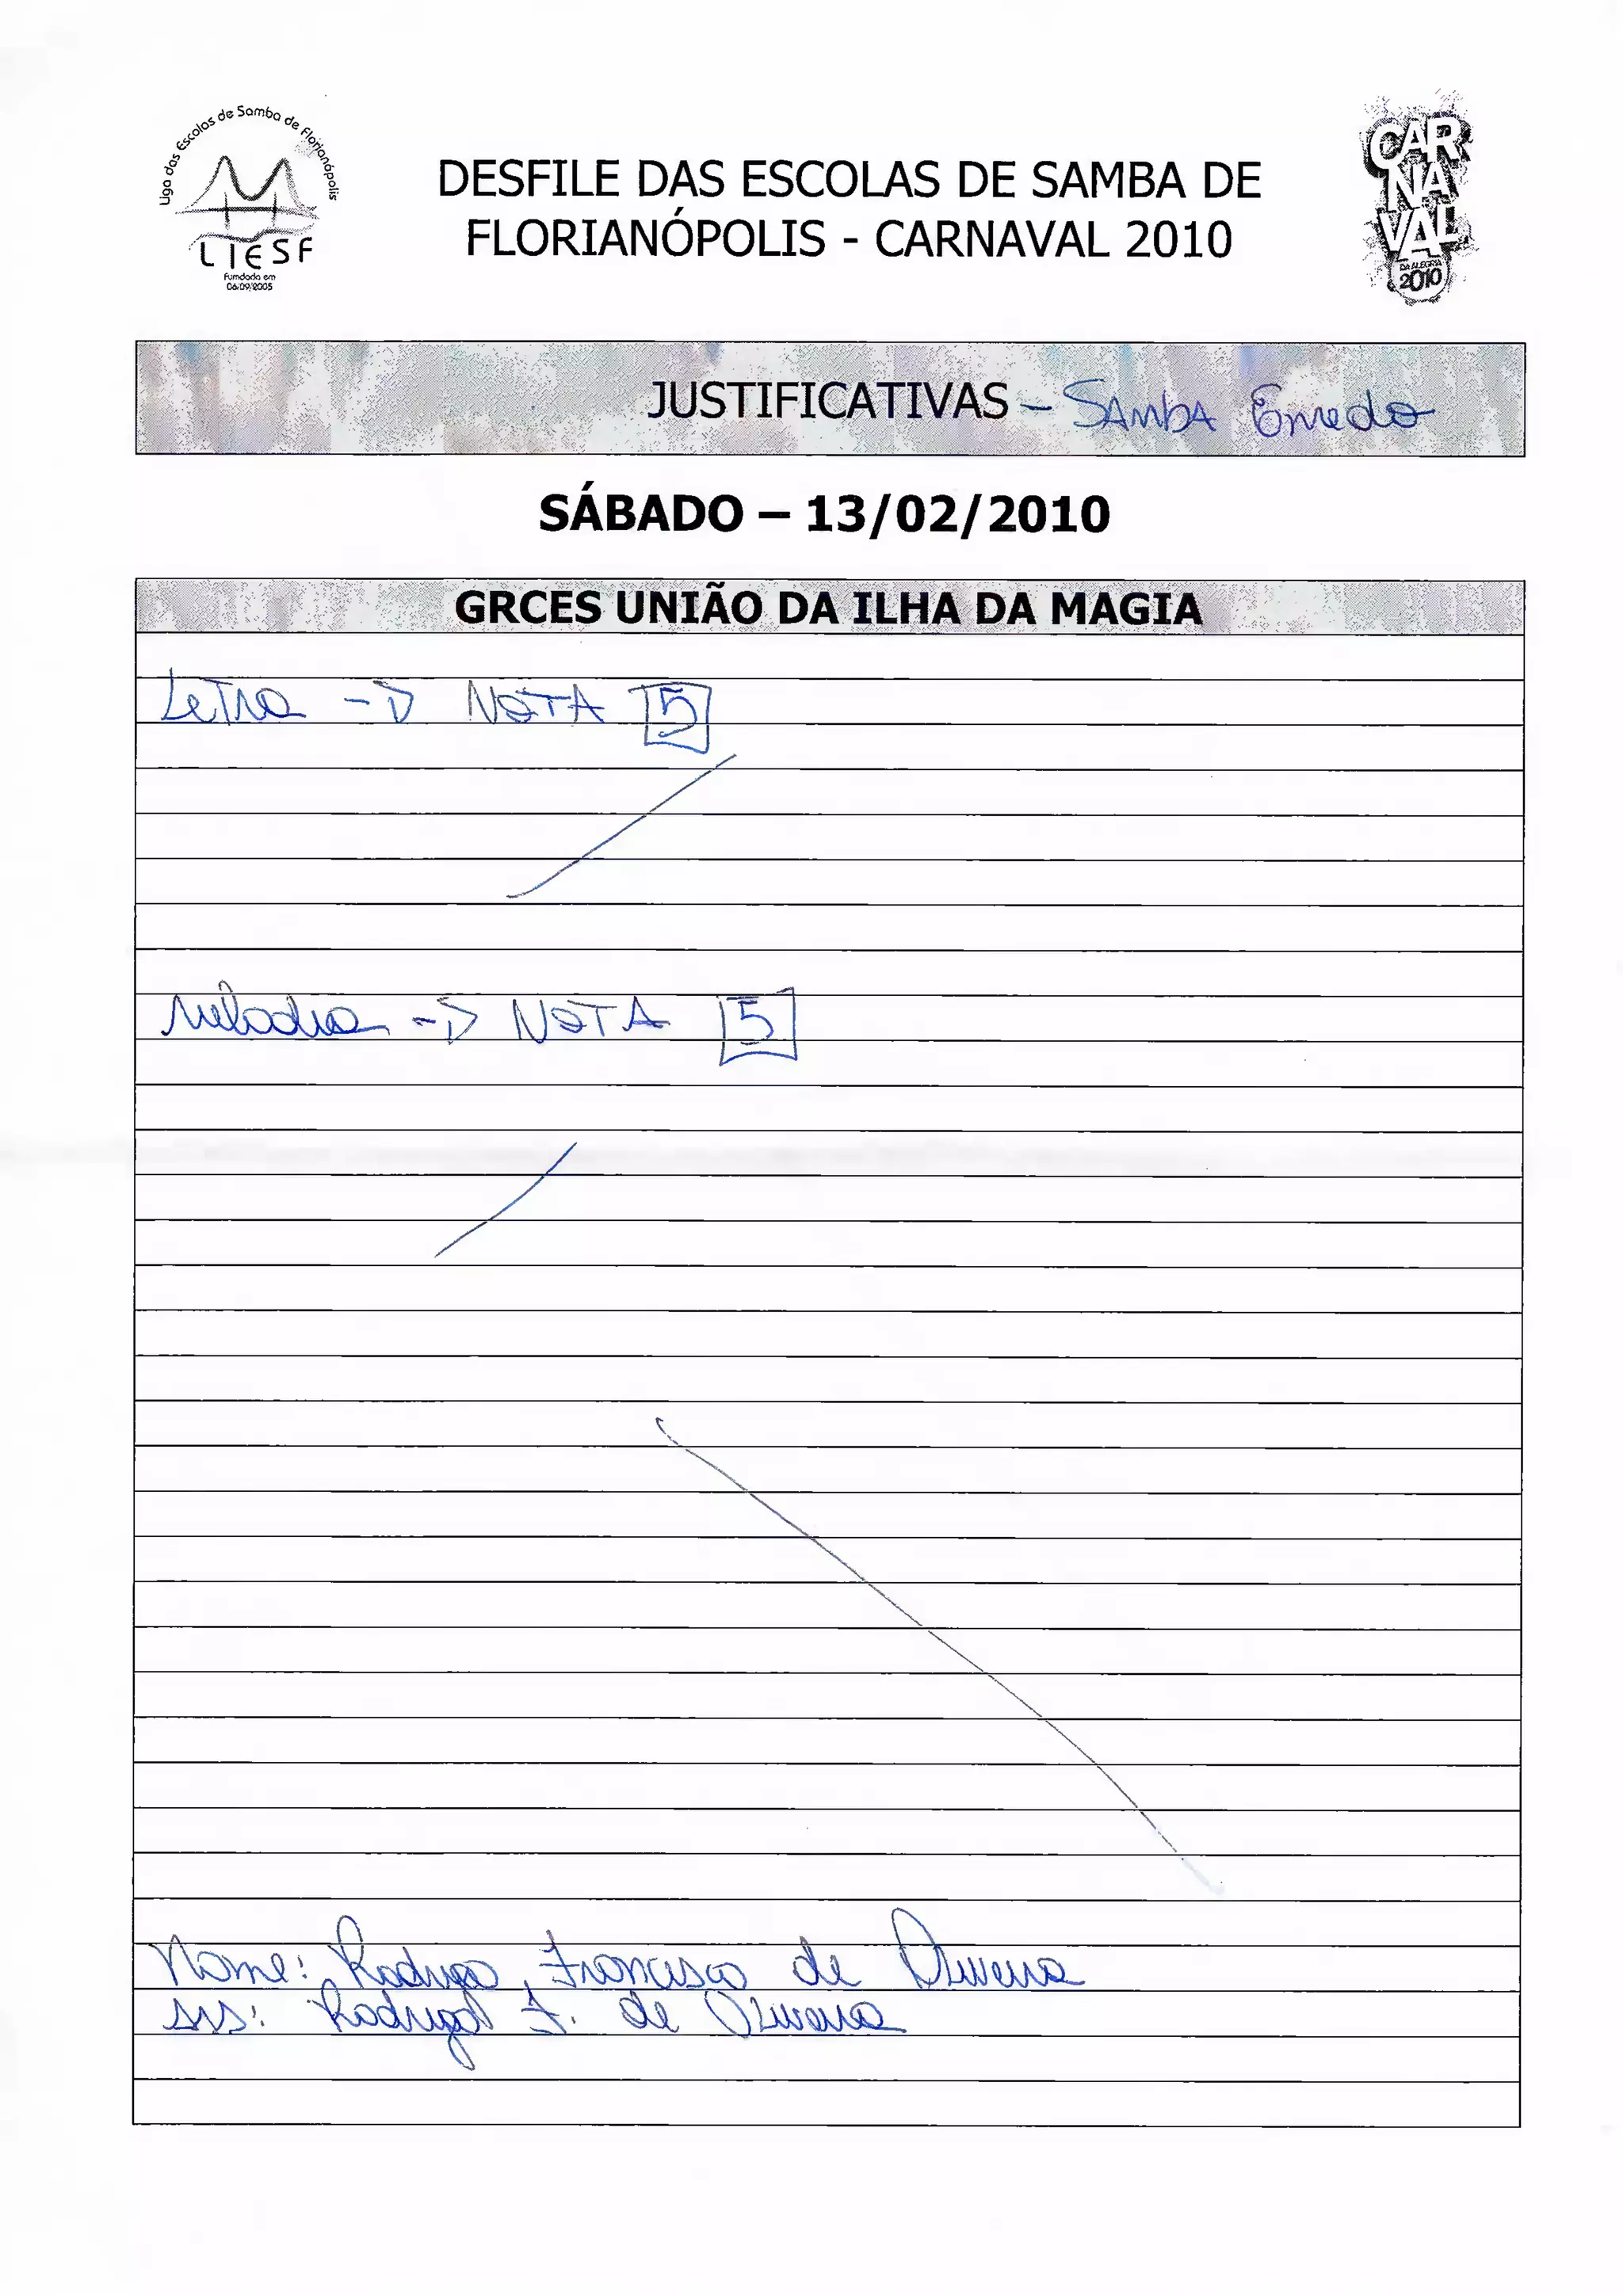 Liga das Escolas de Samba de Florianópolis
LIESF
Fundada em
06/09/2005
DESFILE DAS ESCOLAS DE SAMBA DE
FLORIANÓPOLIS - CARNAVAL 2010
CAR
NA
VAL
DA ALEGRIA
2010
JUSTIFICATIVAS - SAMBA Enredo
SÁBADO – 13/02/2010
GRCES UNIÃO DA ILHA DA MAGIA
Letra -> NOTA 5
Melodia -> NOTA 5
Nome: Rodrigo Francisco de Oliveira
ass: Rodrigo F. de Oliveira